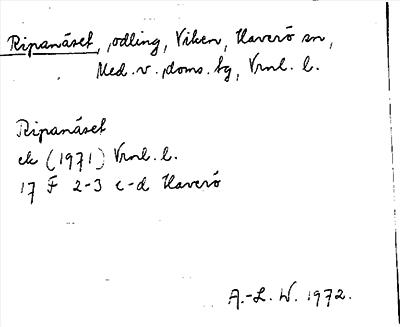 Ripanäset, odling, Viken, Haverö sn,
Med. v. doms. tg, Vrnl. l.
Ripanäset
ek (1971) Vrnl. l.
17 F 2-3 c-d Haverö
A.-L. W. 1972.